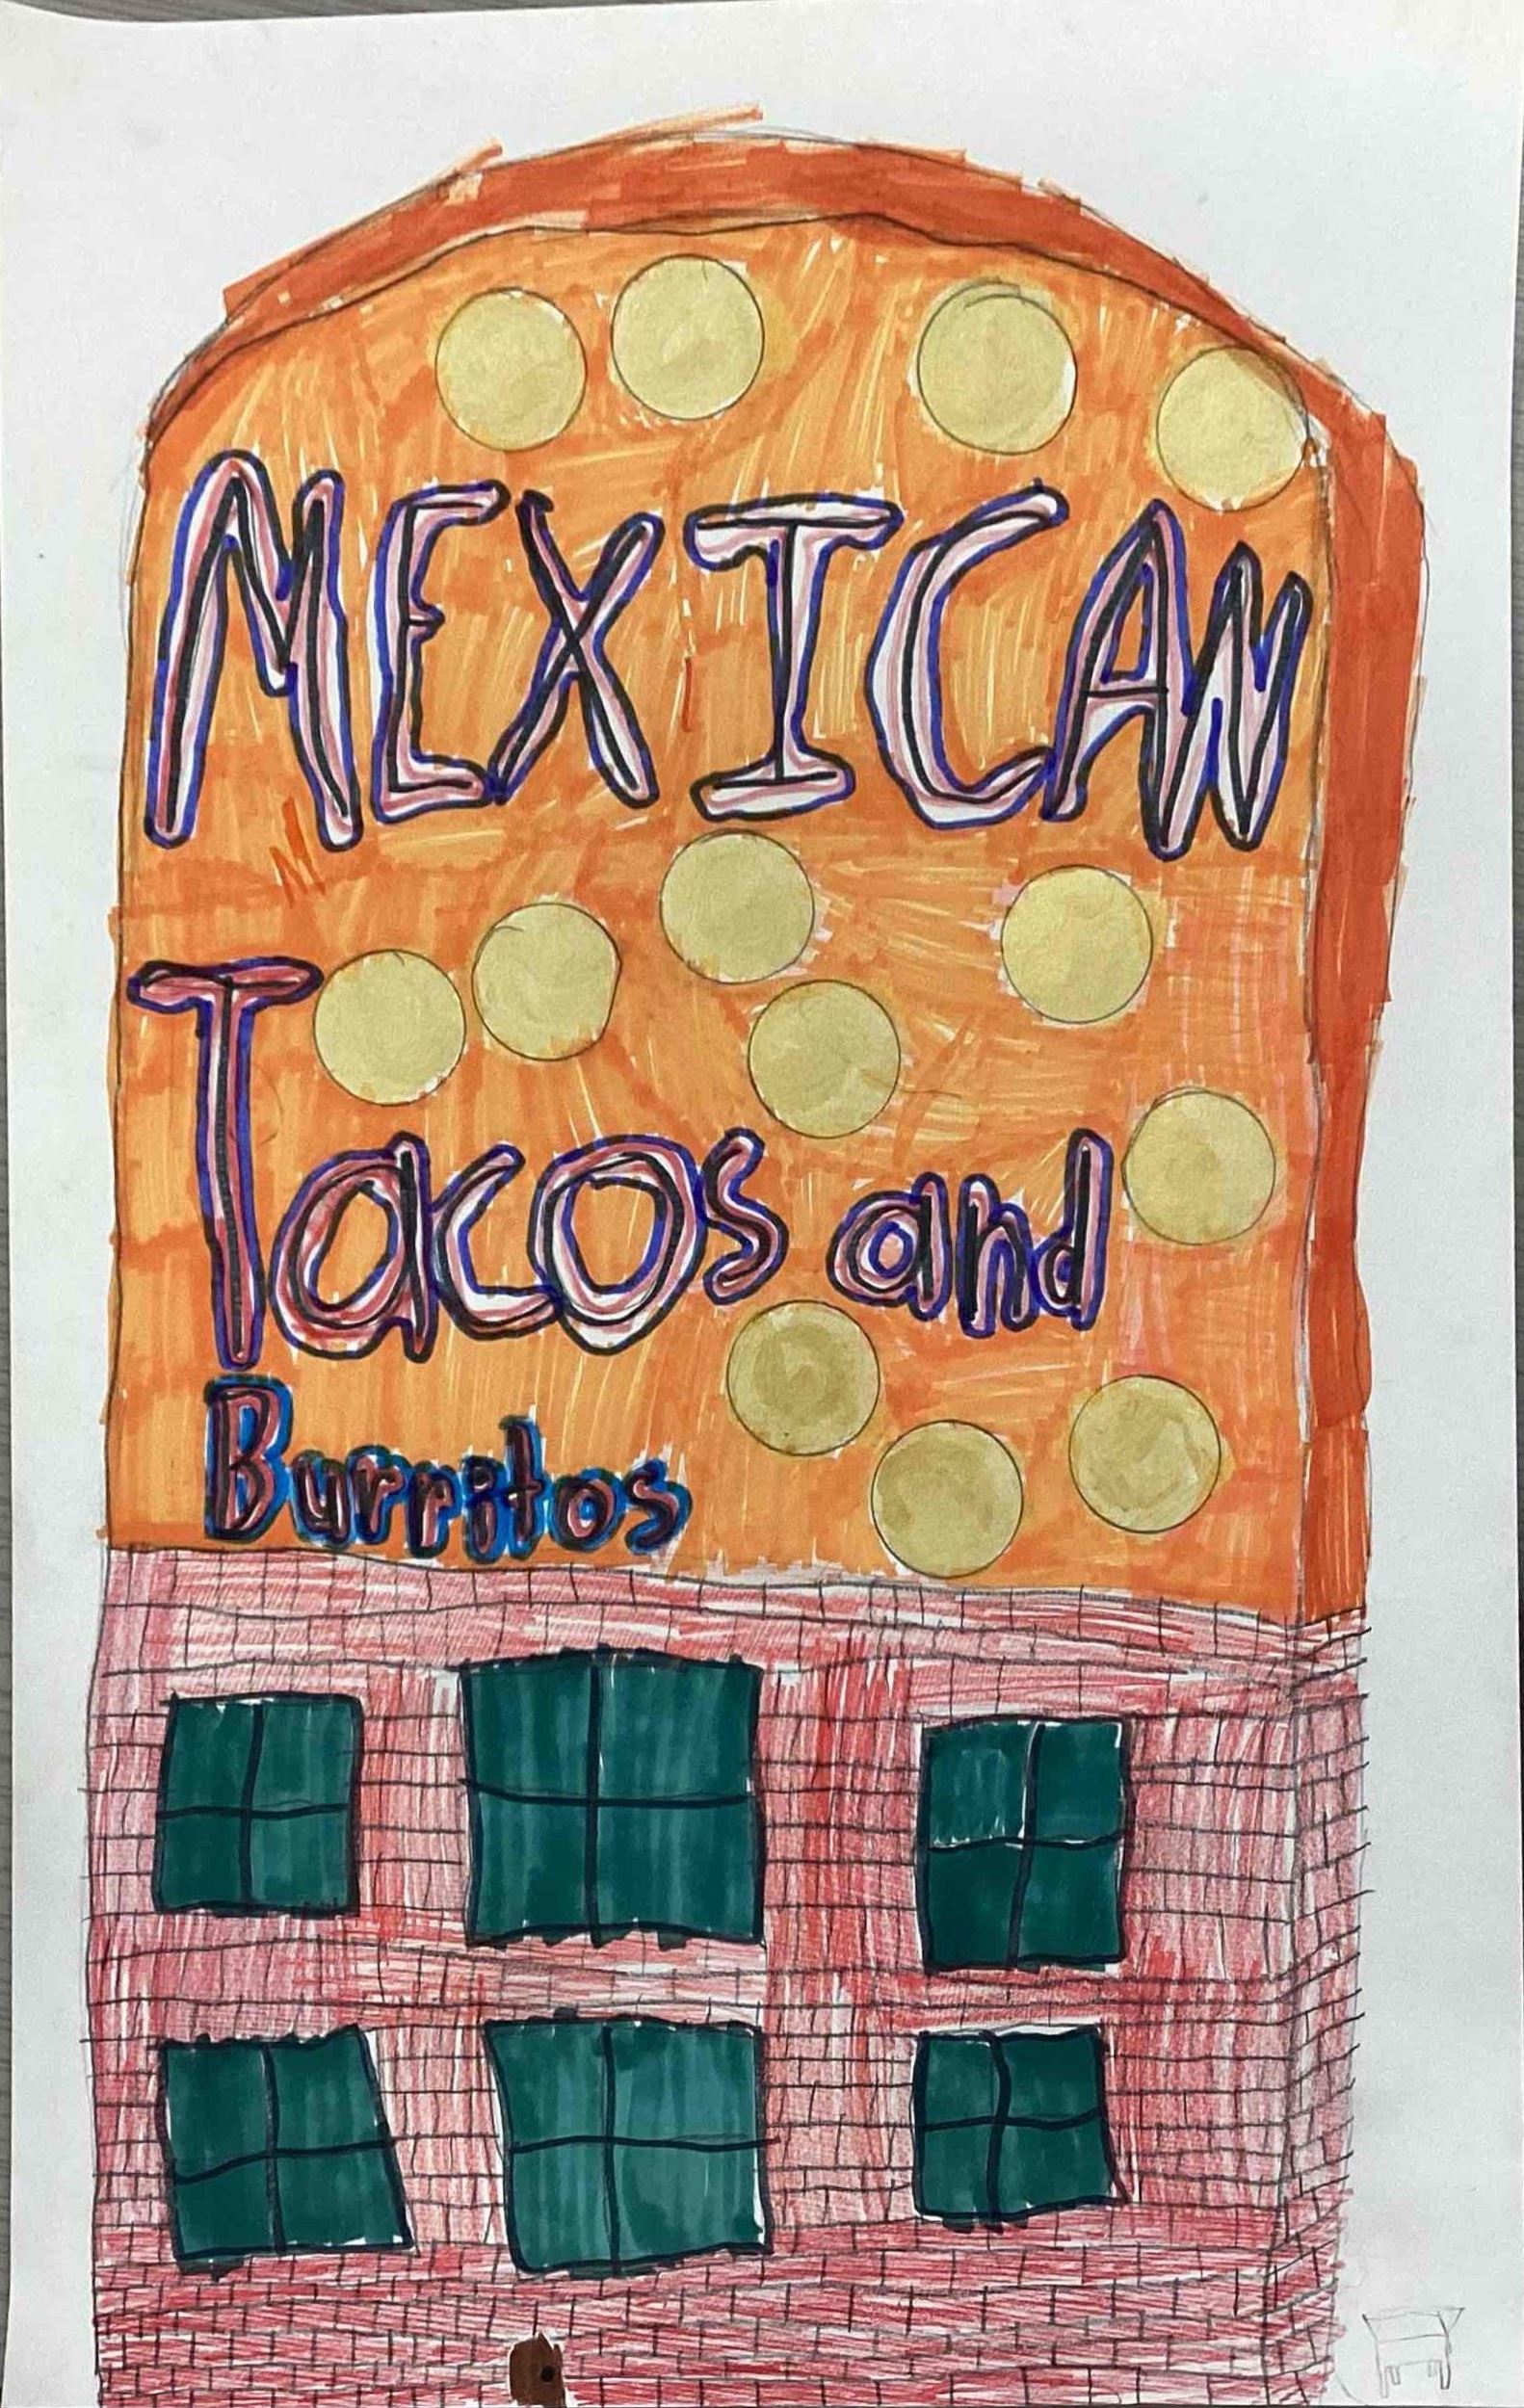 MEXICAN
Tacos and
Burritos